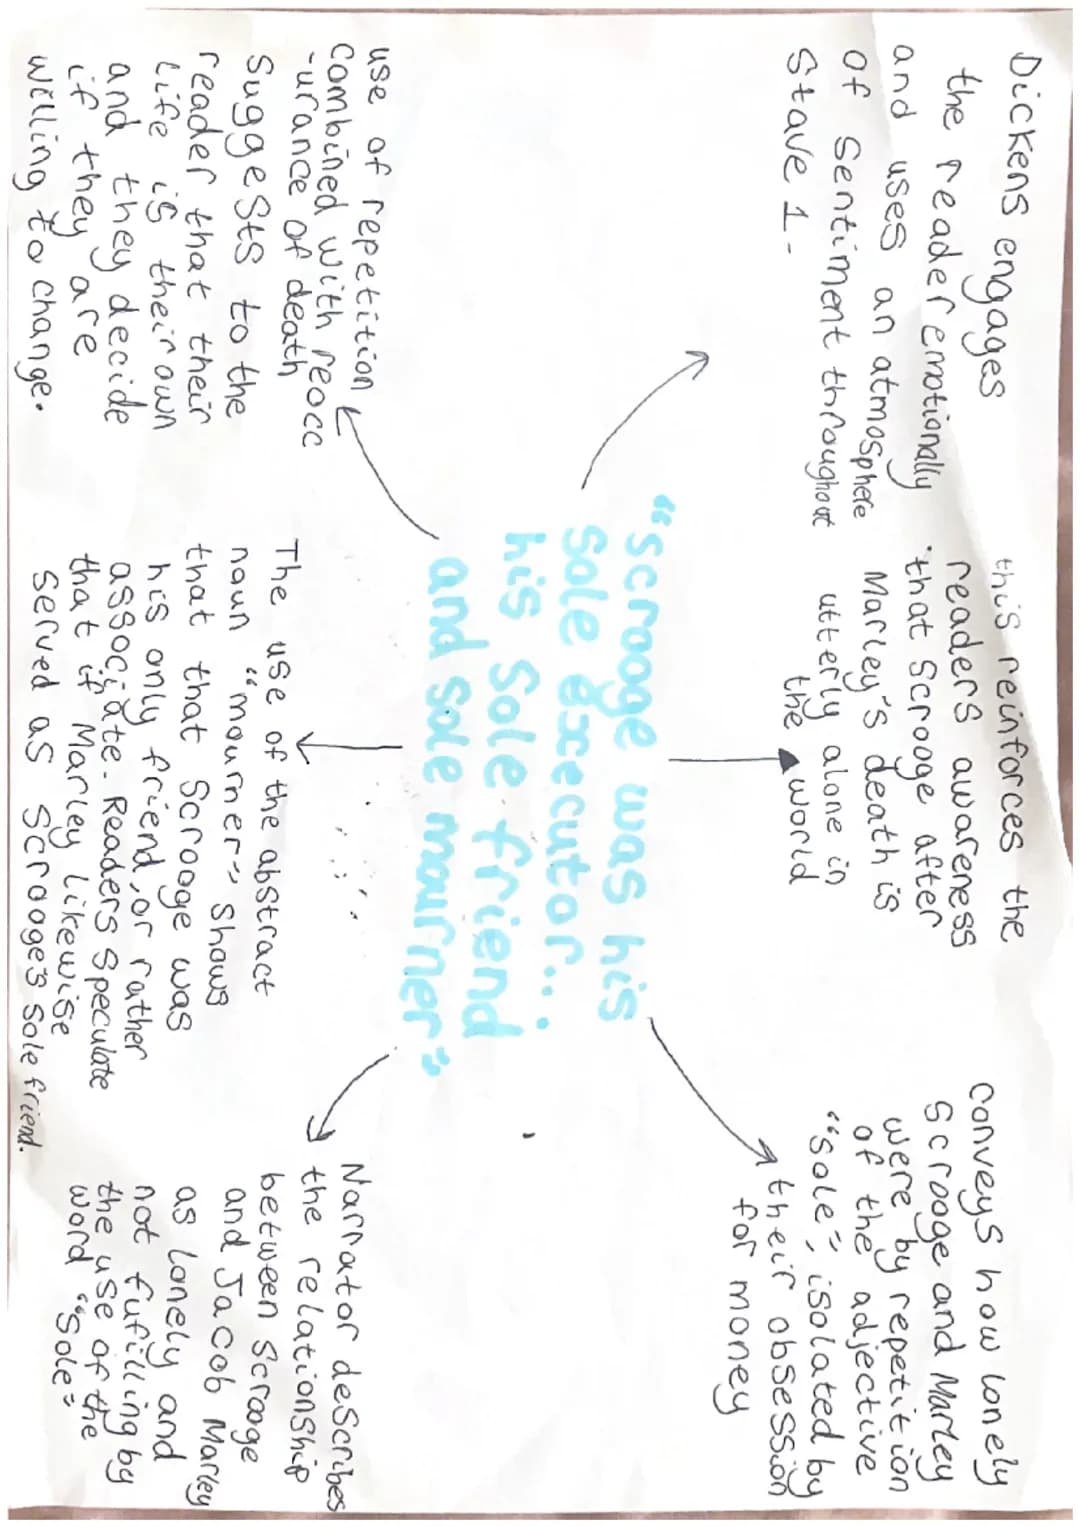 Dickens engages
the reader emotionally
and uses an atmosphere
of sentiment throughout
Stave 1.
this reinforces the
readers awareness
that Scrooge after
Marley's death is
utterly alone in
the world
conveys how lonely
Scrooge and Marley
were by repetition
of the adjective
"sole", isolated by
their obsession
for money
"scrooge was his
sole executor...
his sole friend
and sole mourner"
use of repetition
combined with reocc
-urance of death
suggests to the
reader that their
life is their own
and they decide
if they are
willing to change.
The use of the abstract
noun "mourner" shows
that that Scrooge was
his only friend, or rather
associate. Readers speculate
that if Marley likewise
served as Scrooges sole friend.
Narrator describes
the relationship
between Scrooge
and Jacob Marley
as lonely and
not fufilling by
the use of the
word "sole"